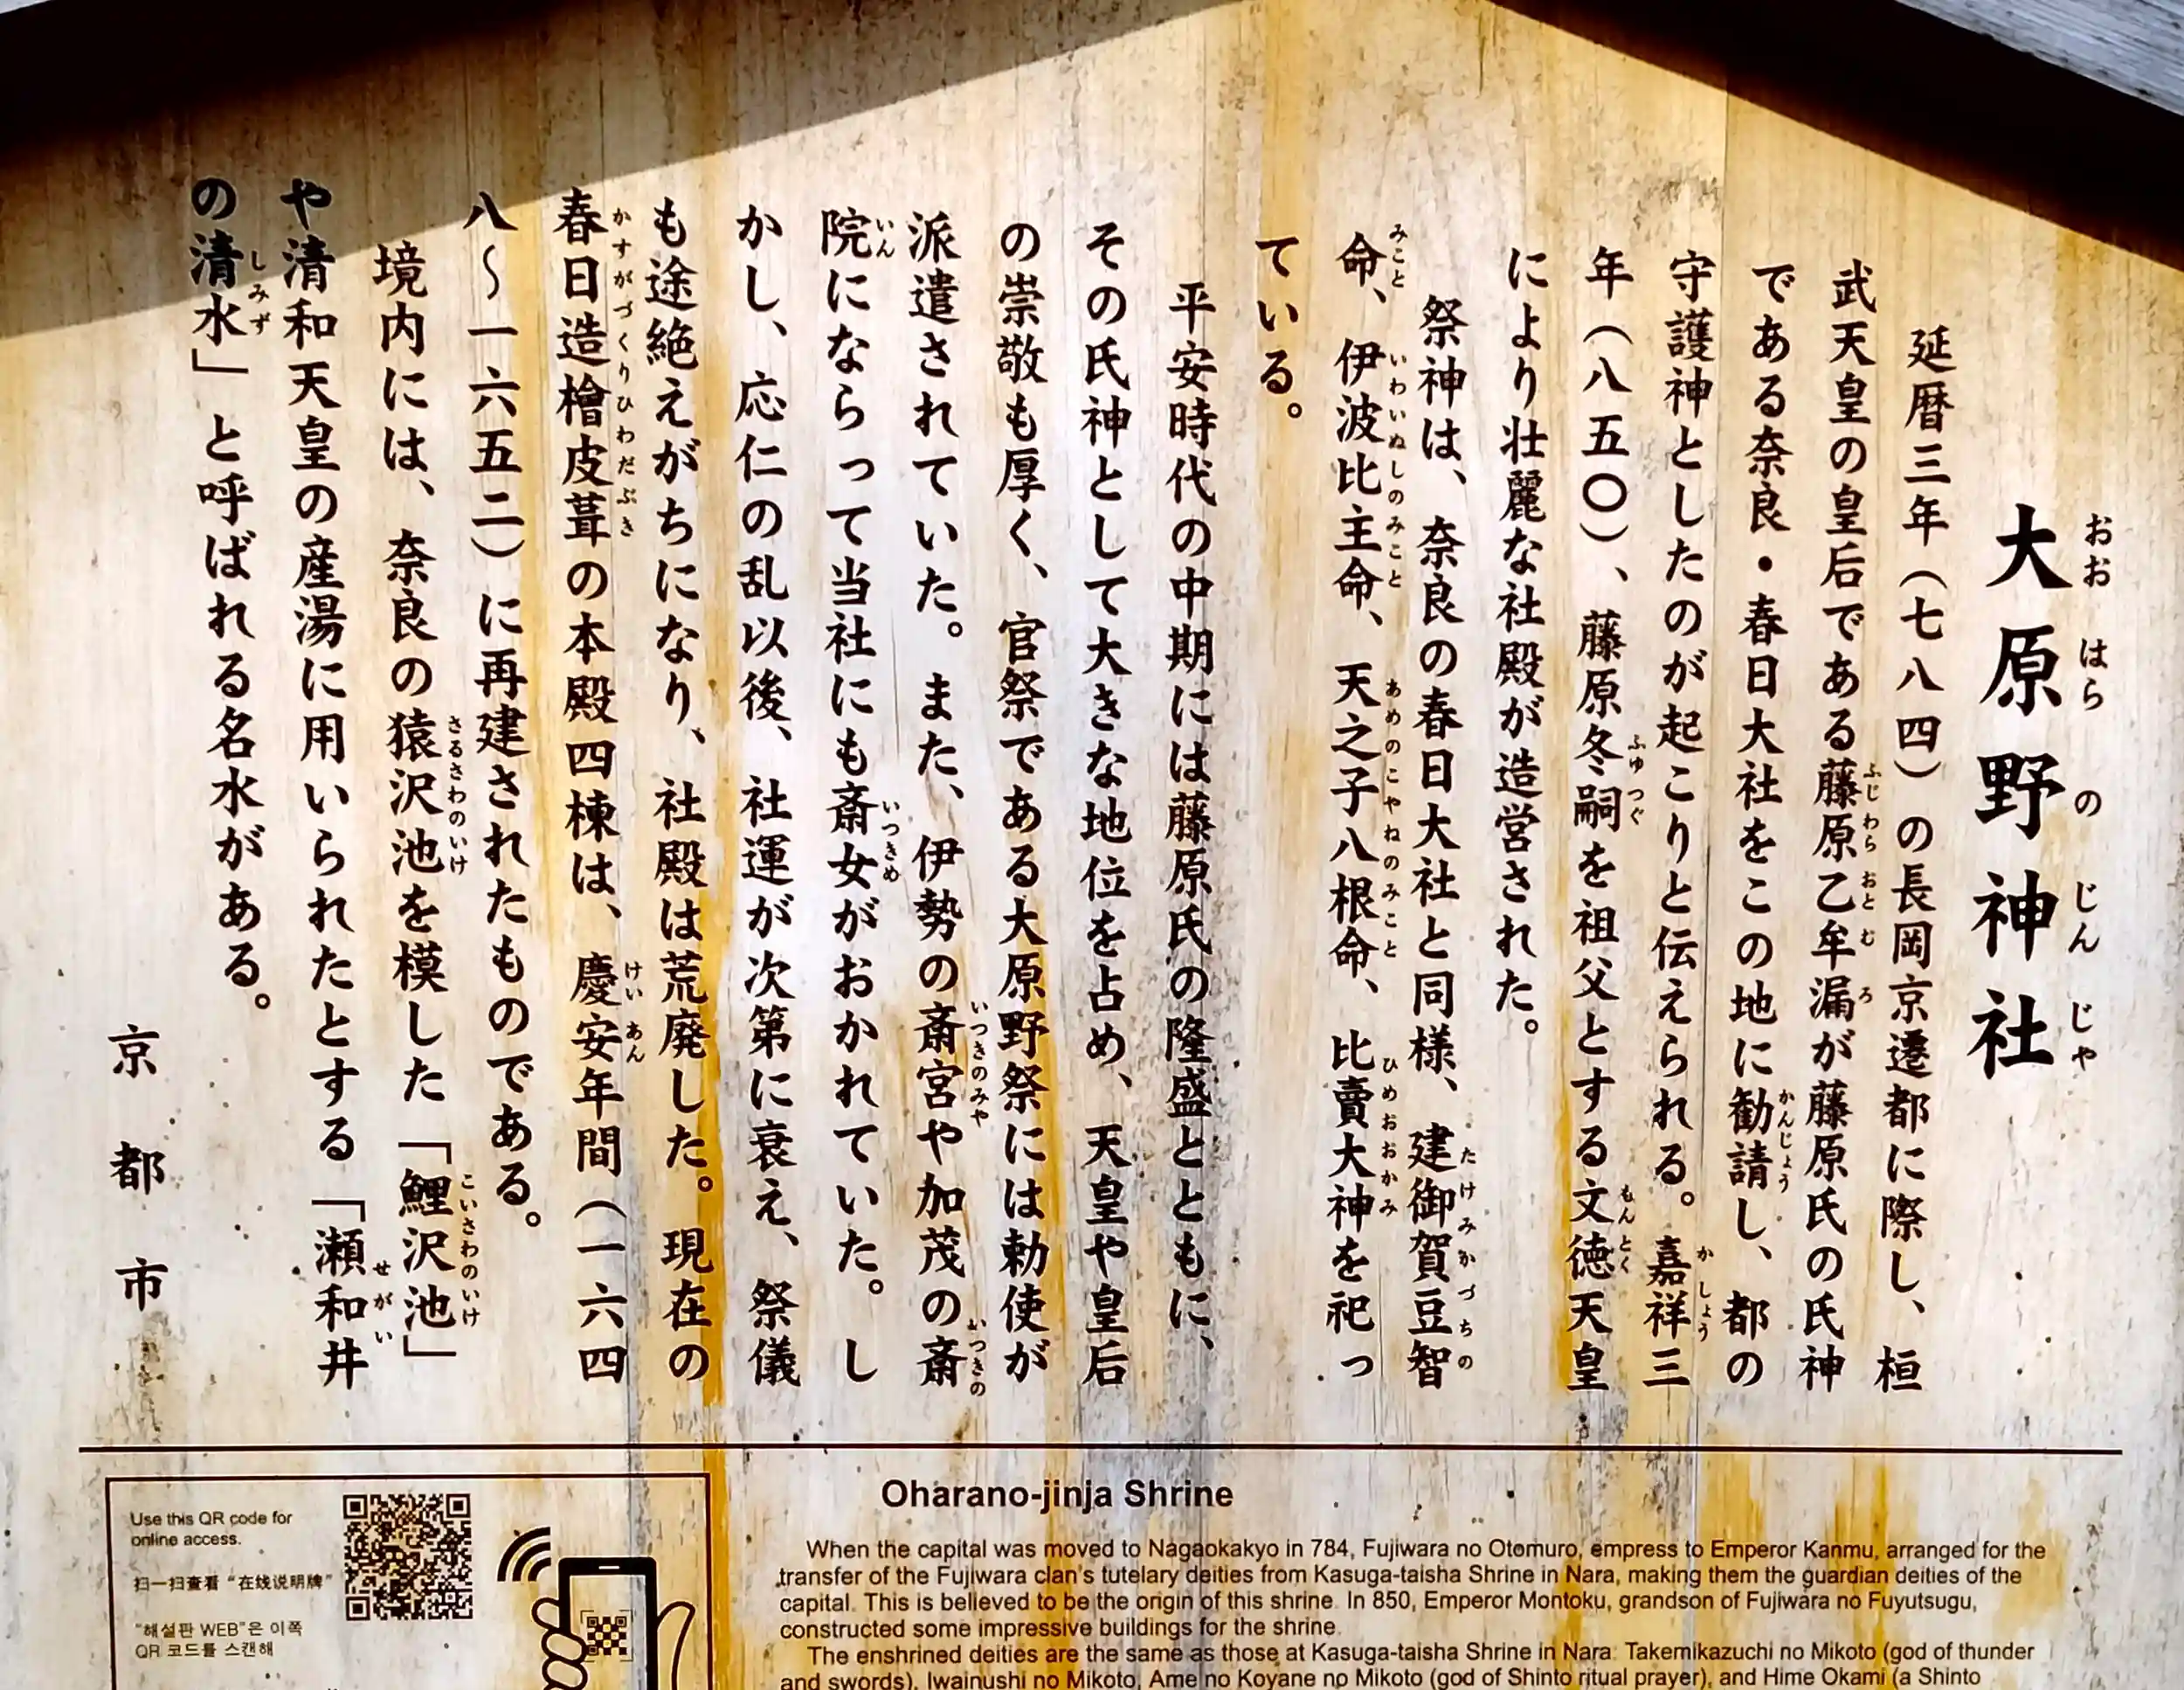 大原野神社
おおはらのじんじゃ
延暦三年（七八四）の長岡京遷都に際し、桓
武天皇の皇后である藤原乙牟漏が藤原氏の氏神
ふじわらおとむろ
である奈良・春日大社をこの地に勧請し、都の
かんじょう
守護神としたのが起こりと伝えられる。嘉祥三
かしょう
年（八五〇）、藤原冬嗣を祖父とする文徳天皇
ふゆつぐ
もんとく
により壮麗な社殿が造営された。
祭神は、奈良の春日大社と同様、建御賀豆智
たけみかづちの
命、伊波比主命、天之子八根命、比賣大神を祀っ
みこと
いわいぬしのみこと
あめのこやねのみこと
ひめおおかみ
ている。
平安時代の中期には藤原氏の隆盛とともに、
その氏神として大きな地位を占め、天皇や皇后
の崇敬も厚く、官祭である大原野祭には勅使が
派遣されていた。また、伊勢の斎宮や加茂の斎
いつきのみや
いつきの
院にならって当社にも斎女がおかれていた。し
いん
いつきめ
かし、応仁の乱以後、社運が次第に衰え、祭儀
も途絶えがちになり、社殿は荒廃した。現在の
春日造檜皮葺の本殿四棟は、慶安年間（一六四
かすがづくりひわだぶき
けいあん
八～一六五二）に再建されたものである。
境内には、奈良の猿沢池を模した「鯉沢池」
さるさわのいけ
こいさわのいけ
や清和天皇の産湯に用いられたとする「瀬和井
せがい
の清水」と呼ばれる名水がある。
しみず
京都市
Use this QR code for
online access.
扫一扫查看“在线说明牌”
“해설판 WEB”은 이쪽
QR 코드를 스캔해
Oharano-jinja Shrine
When the capital was moved to Nagaokakyo in 784, Fujiwara no Otomuro, empress to Emperor Kanmu, arranged for the
transfer of the Fujiwara clan's tutelary deities from Kasuga-taisha Shrine in Nara, making them the guardian deities of the
capital. This is believed to be the origin of this shrine. In 850, Emperor Montoku, grandson of Fujiwara no Fuyutsugu,
constructed some impressive buildings for the shrine.
The enshrined deities are the same as those at Kasuga-taisha Shrine in Nara: Takemikazuchi no Mikoto (god of thunder
and swords), Iwainushi no Mikoto, Ame no Koyane no Mikoto (god of Shinto ritual prayer), and Hime Okami (a Shinto